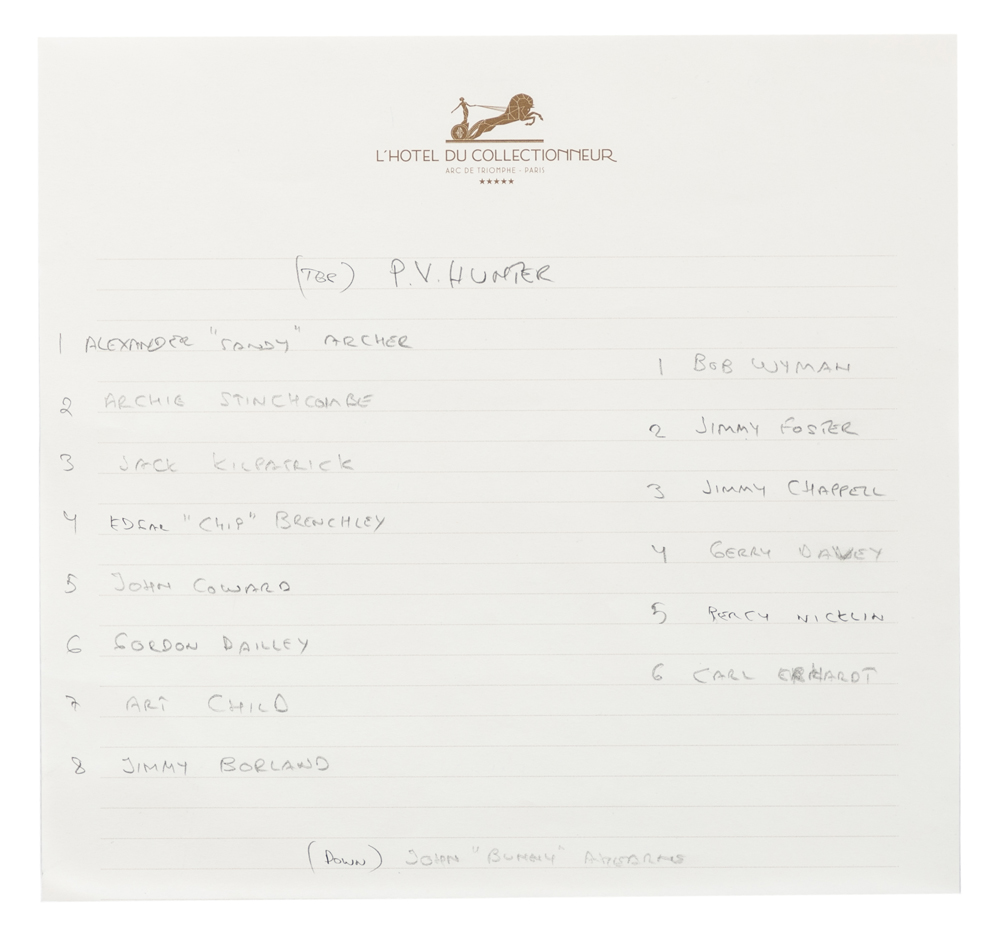 L'HOTEL DU COLLECTIONNEUR
ARC DE TRIOMPHE - PARIS
★★★★★
(TOP) P.V. HUNTER
1 ALEXANDER "SANDY" ARCHER
2 ARCHIE STINCHCOMBE
3 JACK KILPATRICK
4 EDGAR "CHIP" BRENCHLEY
5 JOHN COWARD
6 GORDON DAILLEY
7 ART CHILD
8 JIMMY BORLAND
1 BOB WYMAN
2 JIMMY FOSTER
3 JIMMY CHAPPELL
4 GERRY DAVEY
5 PERCY NICKLIN
6 CARL ERHARDT
(DOWN) JOHN "BUNNY" AHEARNE